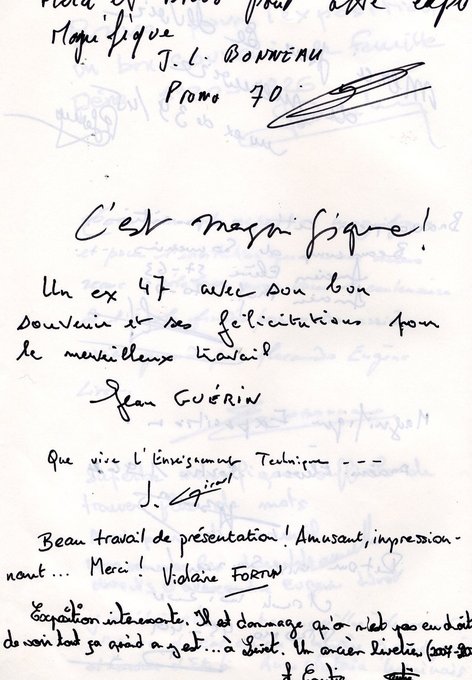 et bravo pour cette expo
Magnifique
J. L. BONNEAU
Promo 70
C'est magnifique !
Un ex 47 avec son bon
souvenir et ses félicitations pour
le merveilleux travail
Jean GUÉRIN
Que vive l'Enseignement Technique ---
J.
Beau travail de présentation ! Amusant, impression-
nant... Merci ! Violaine FORTIN
Expo​sition interessante. Il est dommage qu'on n'est pas en droit
de voir tout ça quand on y est... à Livet. Un ancien livetien (2007-20